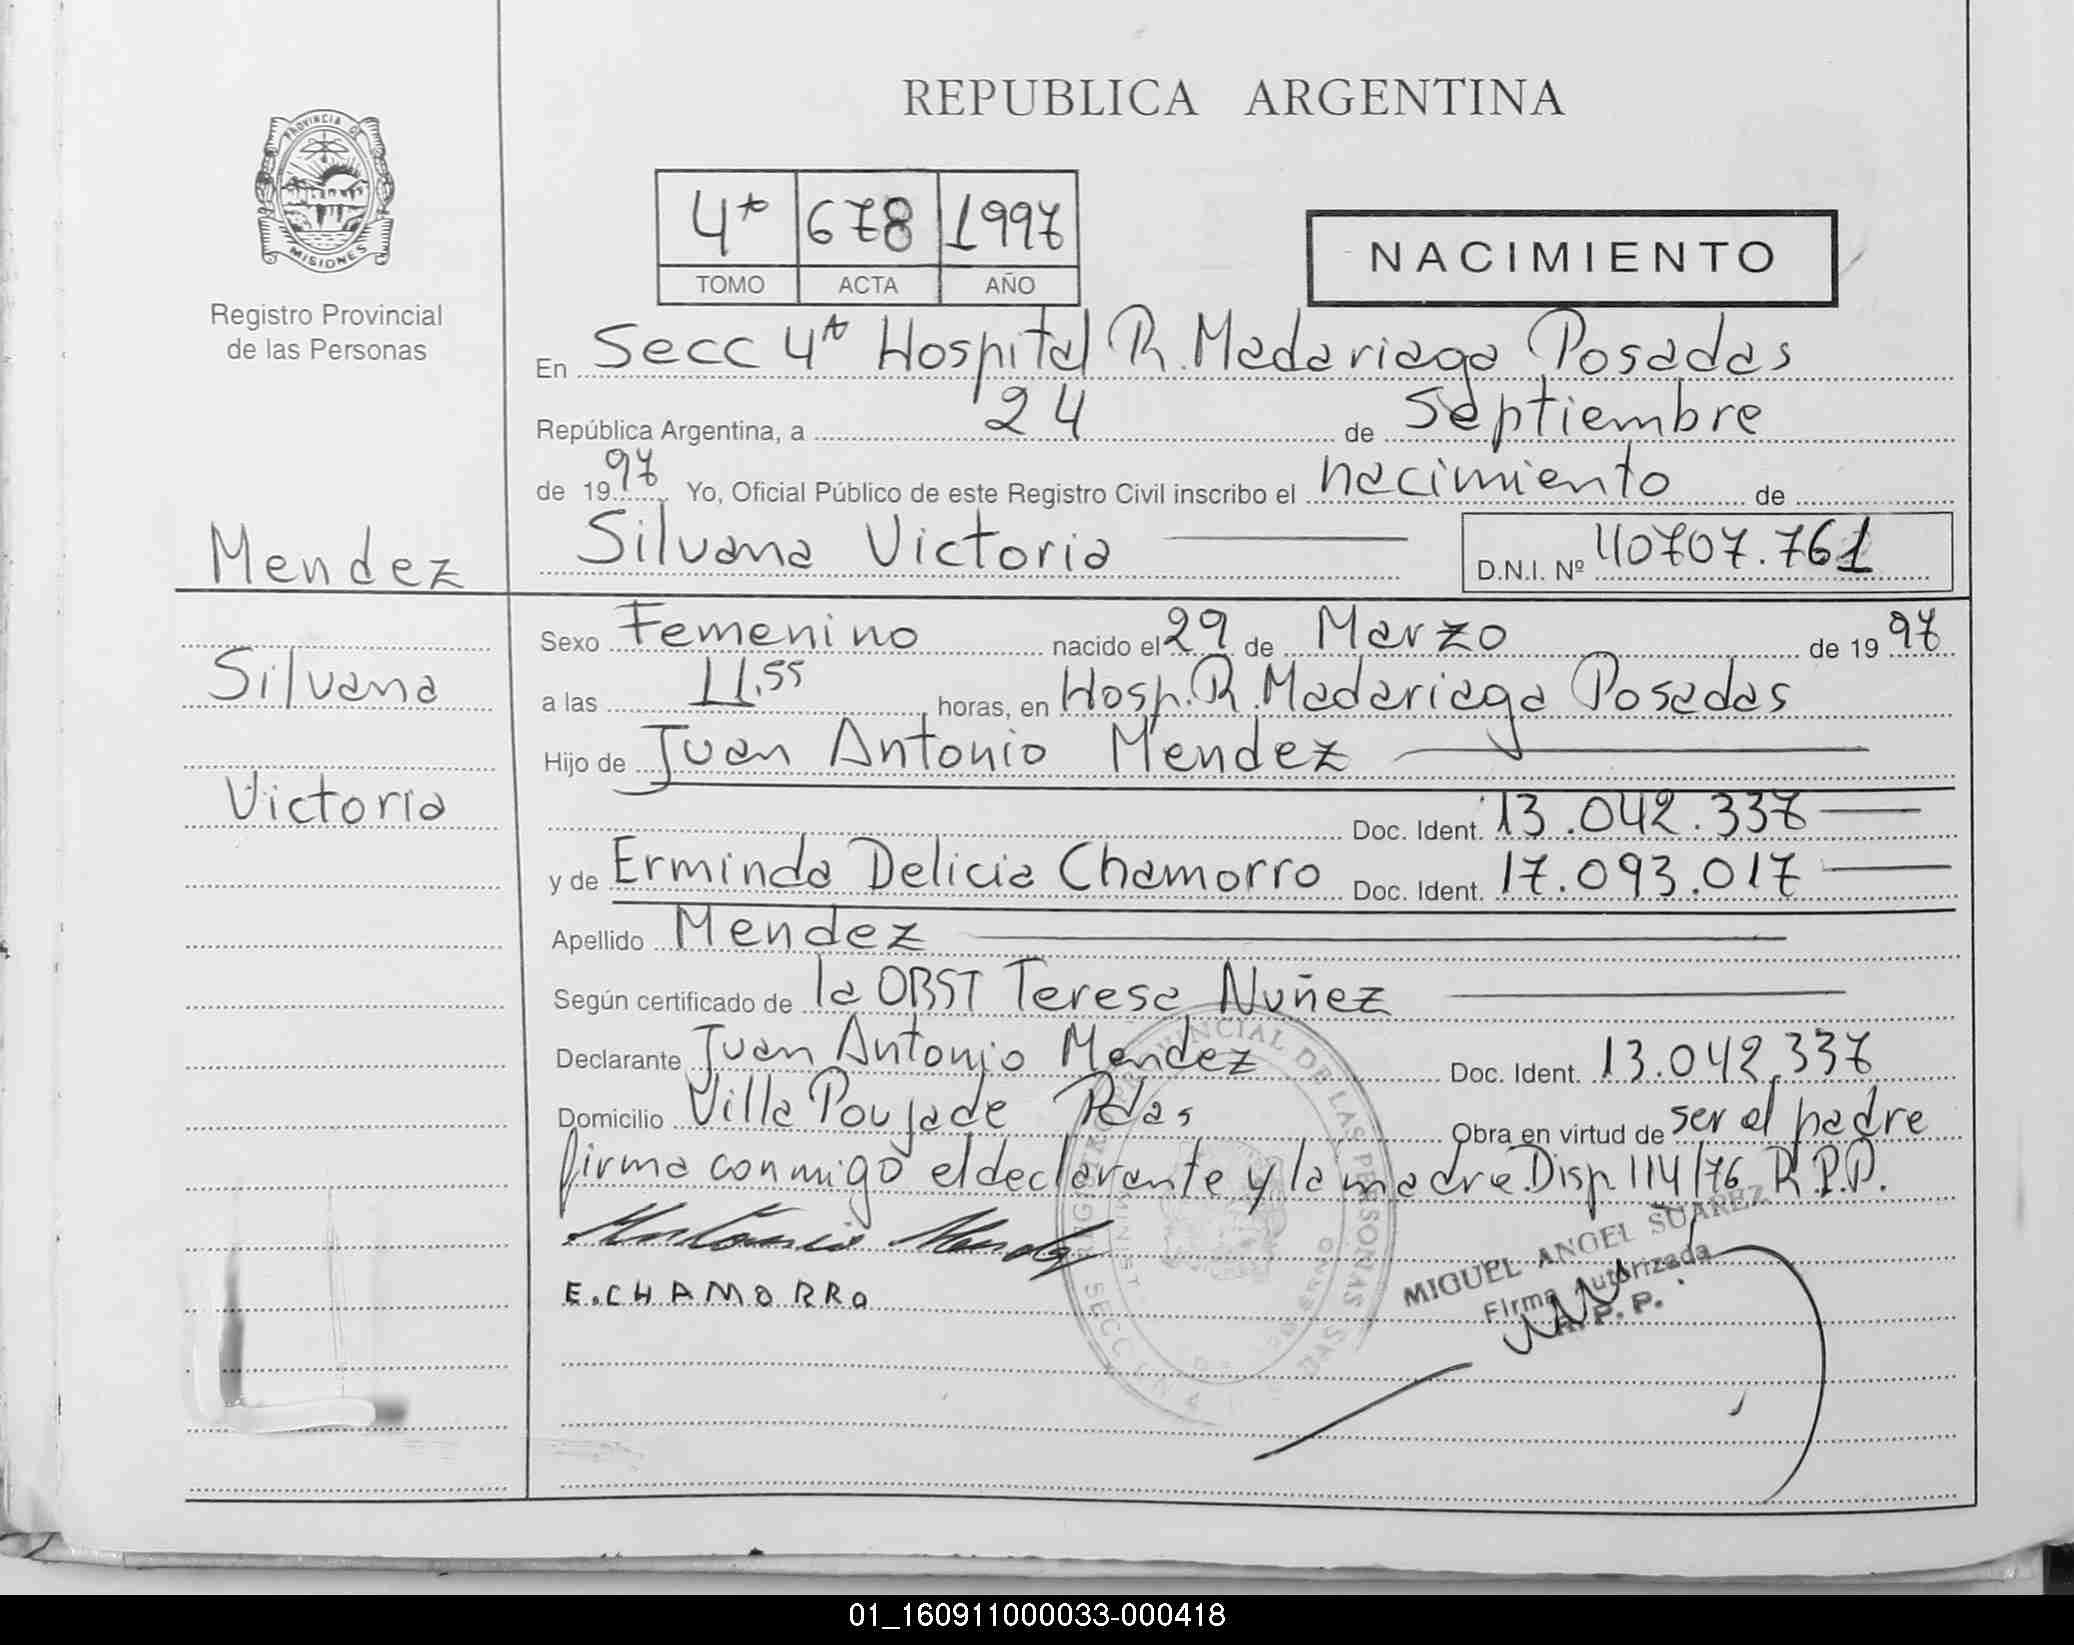 REPUBLICA ARGENTINA
PROVINCIA DE
MISIONES
Registro Provincial
de las Personas
4ta 678 1997
TOMO ACTA AÑO
NACIMIENTO
En Secc 4ta Hospital R. Madariaga Posadas
República Argentina, a 24 de Septiembre
de 1997 Yo, Oficial Público de este Registro Civil inscribo el nacimiento de
Silvana Victoria D.N.I. Nº 40707.761
Mendez
Silvana
Victoria
Sexo Femenino nacido el 29 de Marzo de 1997
a las 11.55 horas, en Hosp. R. Madariaga Posadas
Hijo de Juan Antonio Mendez
Doc. Ident. 13.042.337
y de Erminda Delicia Chamorro Doc. Ident. 17.093.017
Apellido Mendez
Según certificado de la OBST Teresa Nuñez
Declarante Juan Antonio Mendez Doc. Ident. 13.042.337
Domicilio Villa Poujade Pdas Obra en virtud de ser el padre
firma conmigo el declarante y la madre. Disp. 114/76 R.P.P.
Antonio Mendez
E. CHAMORRO
MIGUEL ANGEL SUAREZ
Firma Autorizada
R. P. P.
01_160911000033-000418